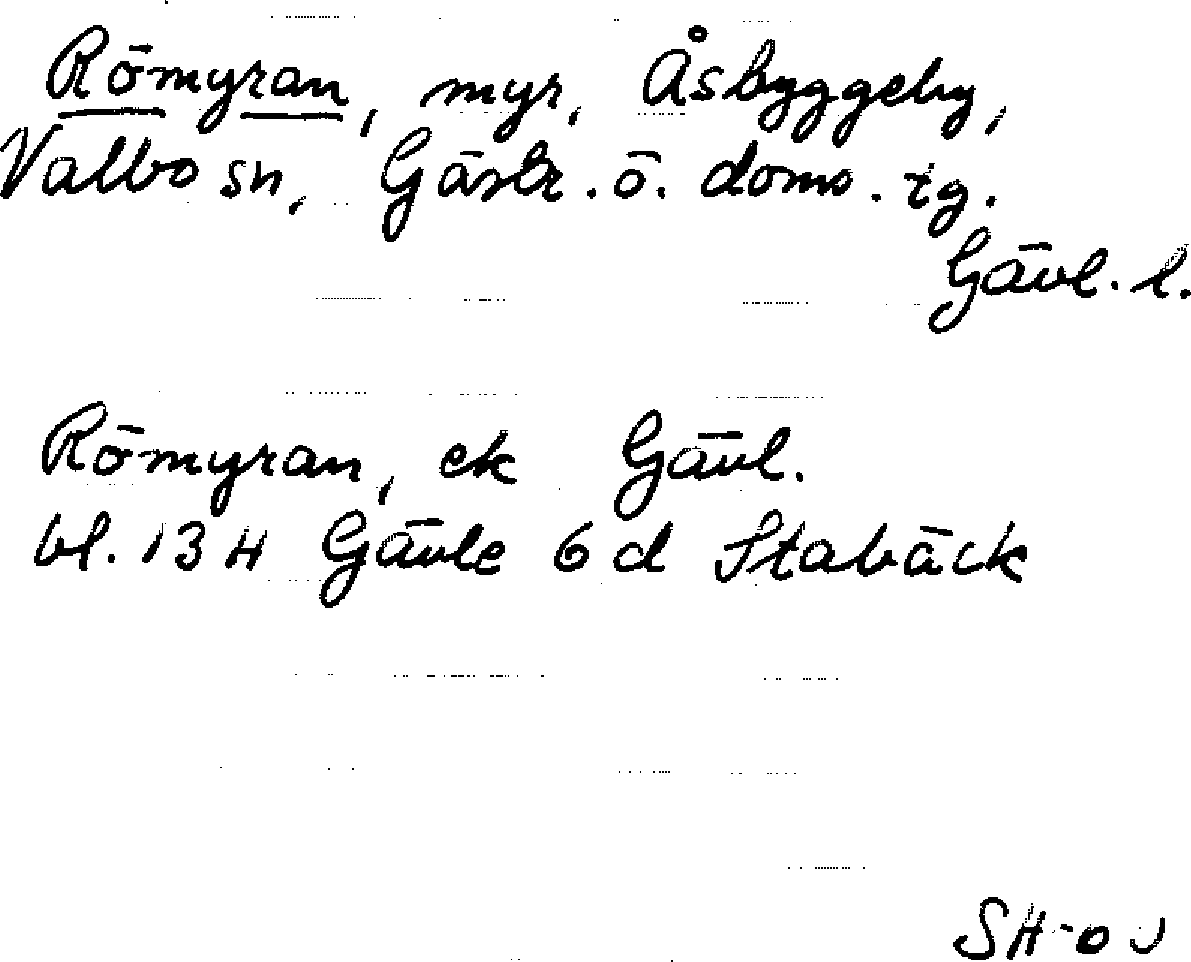 Römyran, myr, Åsbyggeby,
Valbo sn, Gästr. ö. doms. tg.
Gävl. l.
Römyran, ek Gävl.
bl. 13 H Gävle 6 d Stabäck
SH-0